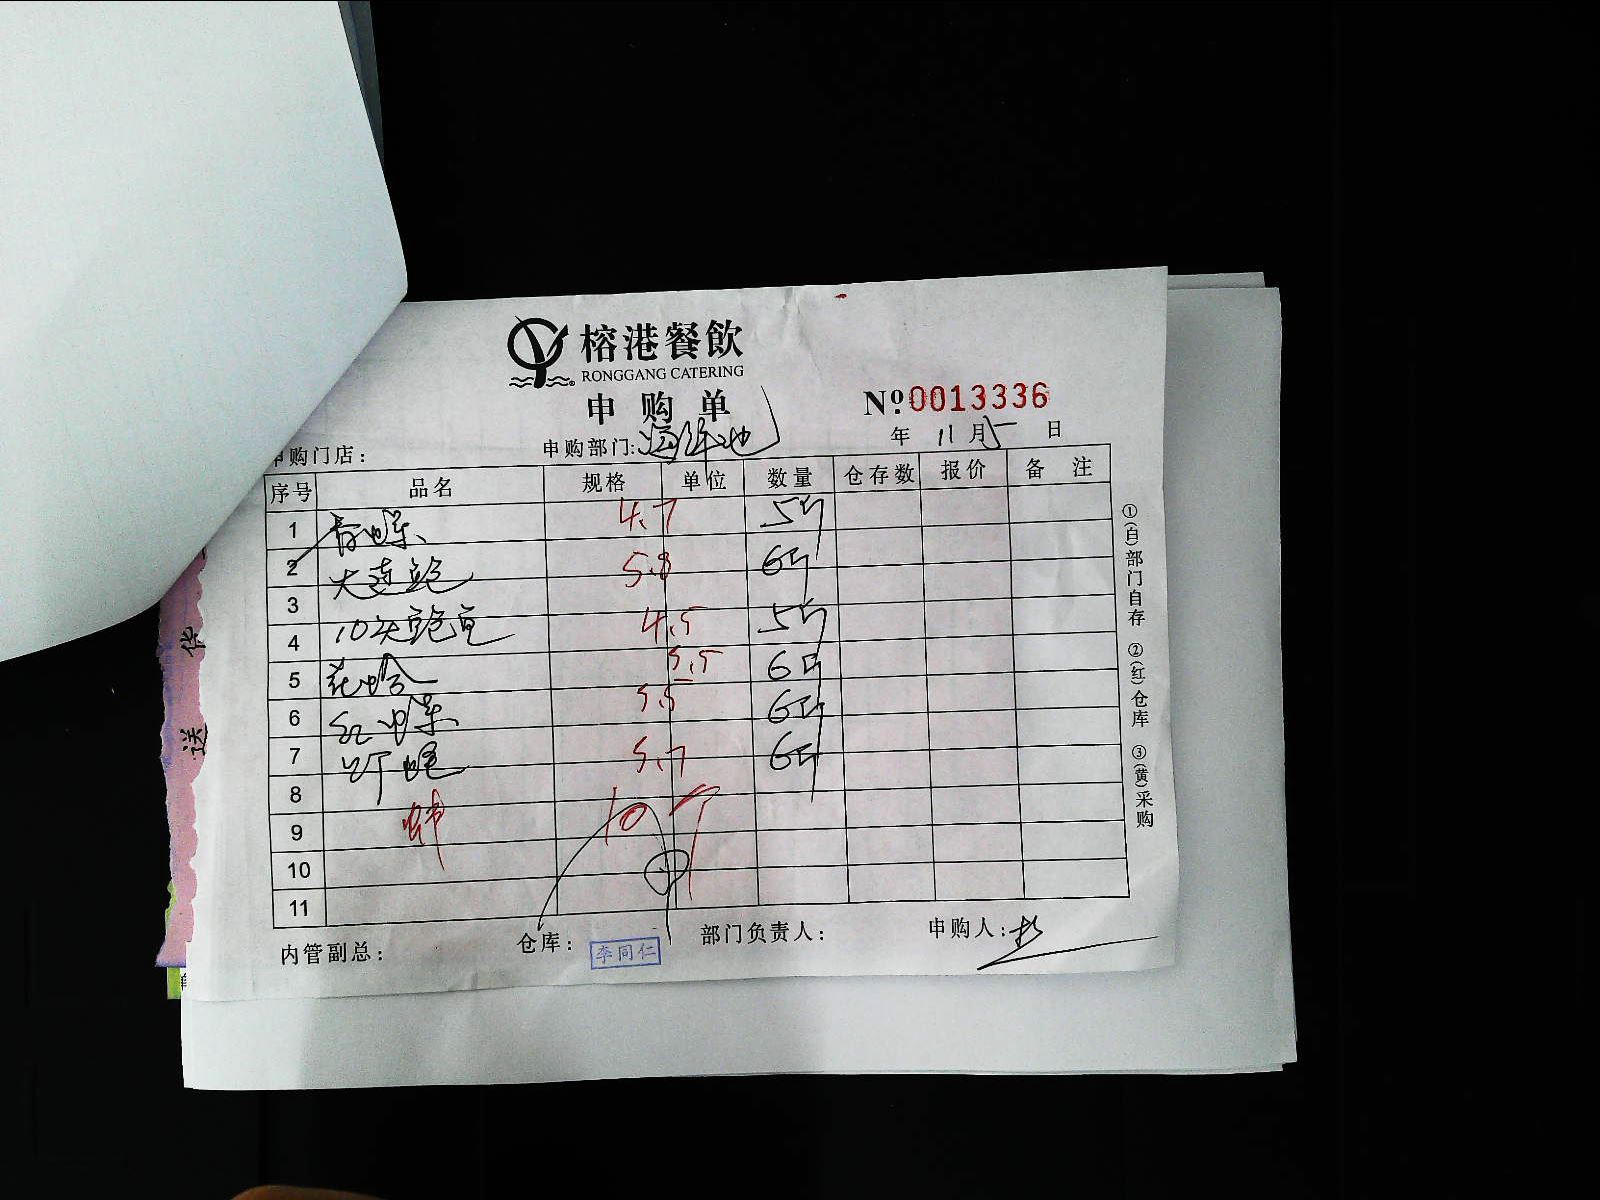 榕港餐飲
RONGGANG CATERING
申购单
№:0013336
年 11月5日
申购门店: 申购部门:海鲜池
序号 品名 规格 单位 数量 仓存数 报价 备注
1 4.7 5斤
2 大连鲍 5.8 6斤
3 10头鲍 4.5 5斤
4 花蛤 5.5 6斤
5 5.5 6斤
6 5.7 6斤
7
8
9 107
10
11
内管副总: 仓库: 李同仁 部门负责人: 申购人:
①(白)部门自存 ②(红)仓库 ③(黄)采购
送 华